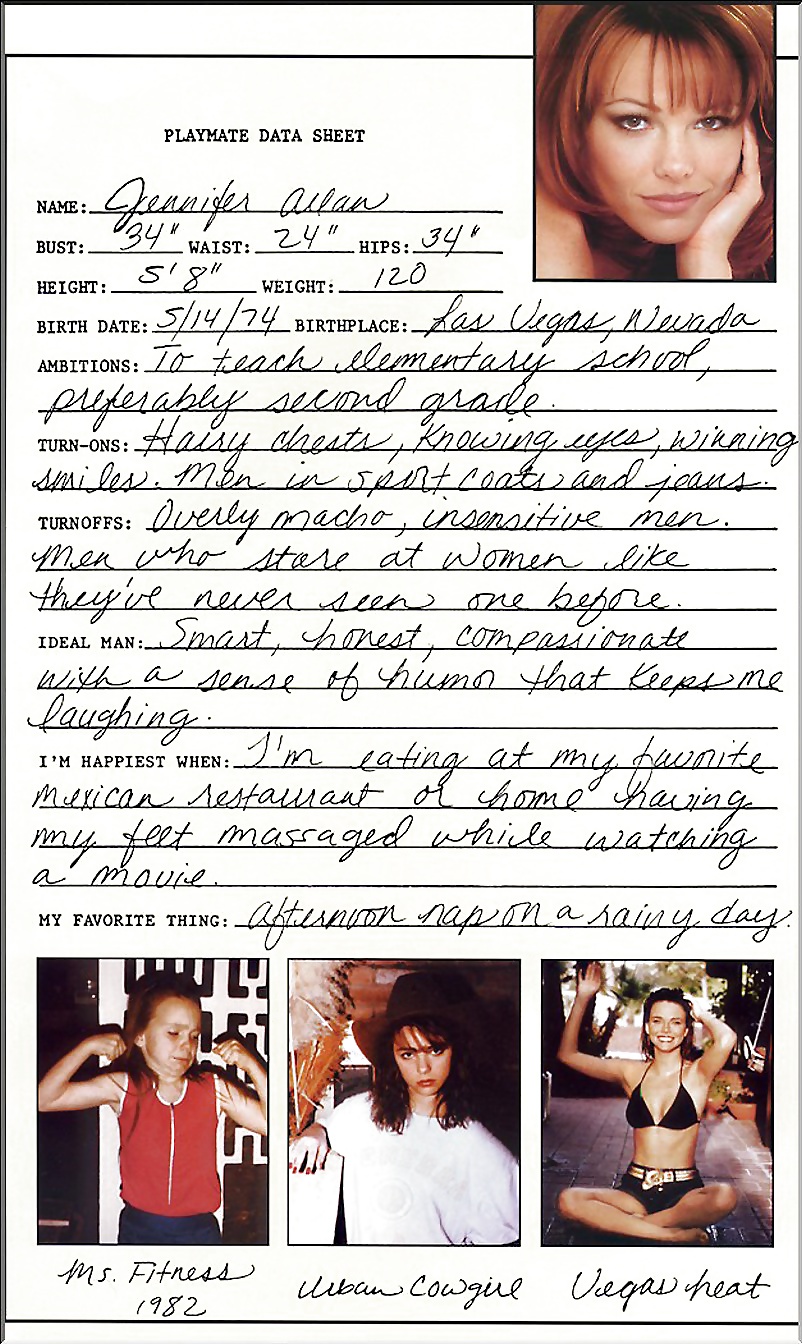 PLAYMATE DATA SHEET
NAME: Jennifer Allan
BUST: 34" WAIST: 24" HIPS: 34"
HEIGHT: 5' 8" WEIGHT: 120
BIRTH DATE: 5/14/74 BIRTHPLACE: Las Vegas, Nevada
AMBITIONS: To teach elementary school,
preferably second grade.
TURN-ONS: Hairy chests, Knowing eyes, winning
smiles. Men in sport coats and jeans.
TURNOFFS: Overly macho, insensitive men.
Men who stare at women like
they've never seen one before.
IDEAL MAN: Smart, honest, compassionate
with a sense of humor that keeps me
laughing.
I'M HAPPIEST WHEN: I'm eating at my favorite
Mexican restaurant or home having
my feet massaged while watching
a movie.
MY FAVORITE THING: Afternoon nap on a rainy day.
Ms. Fitness
1982
Urban Cowgirl
Vegas heat